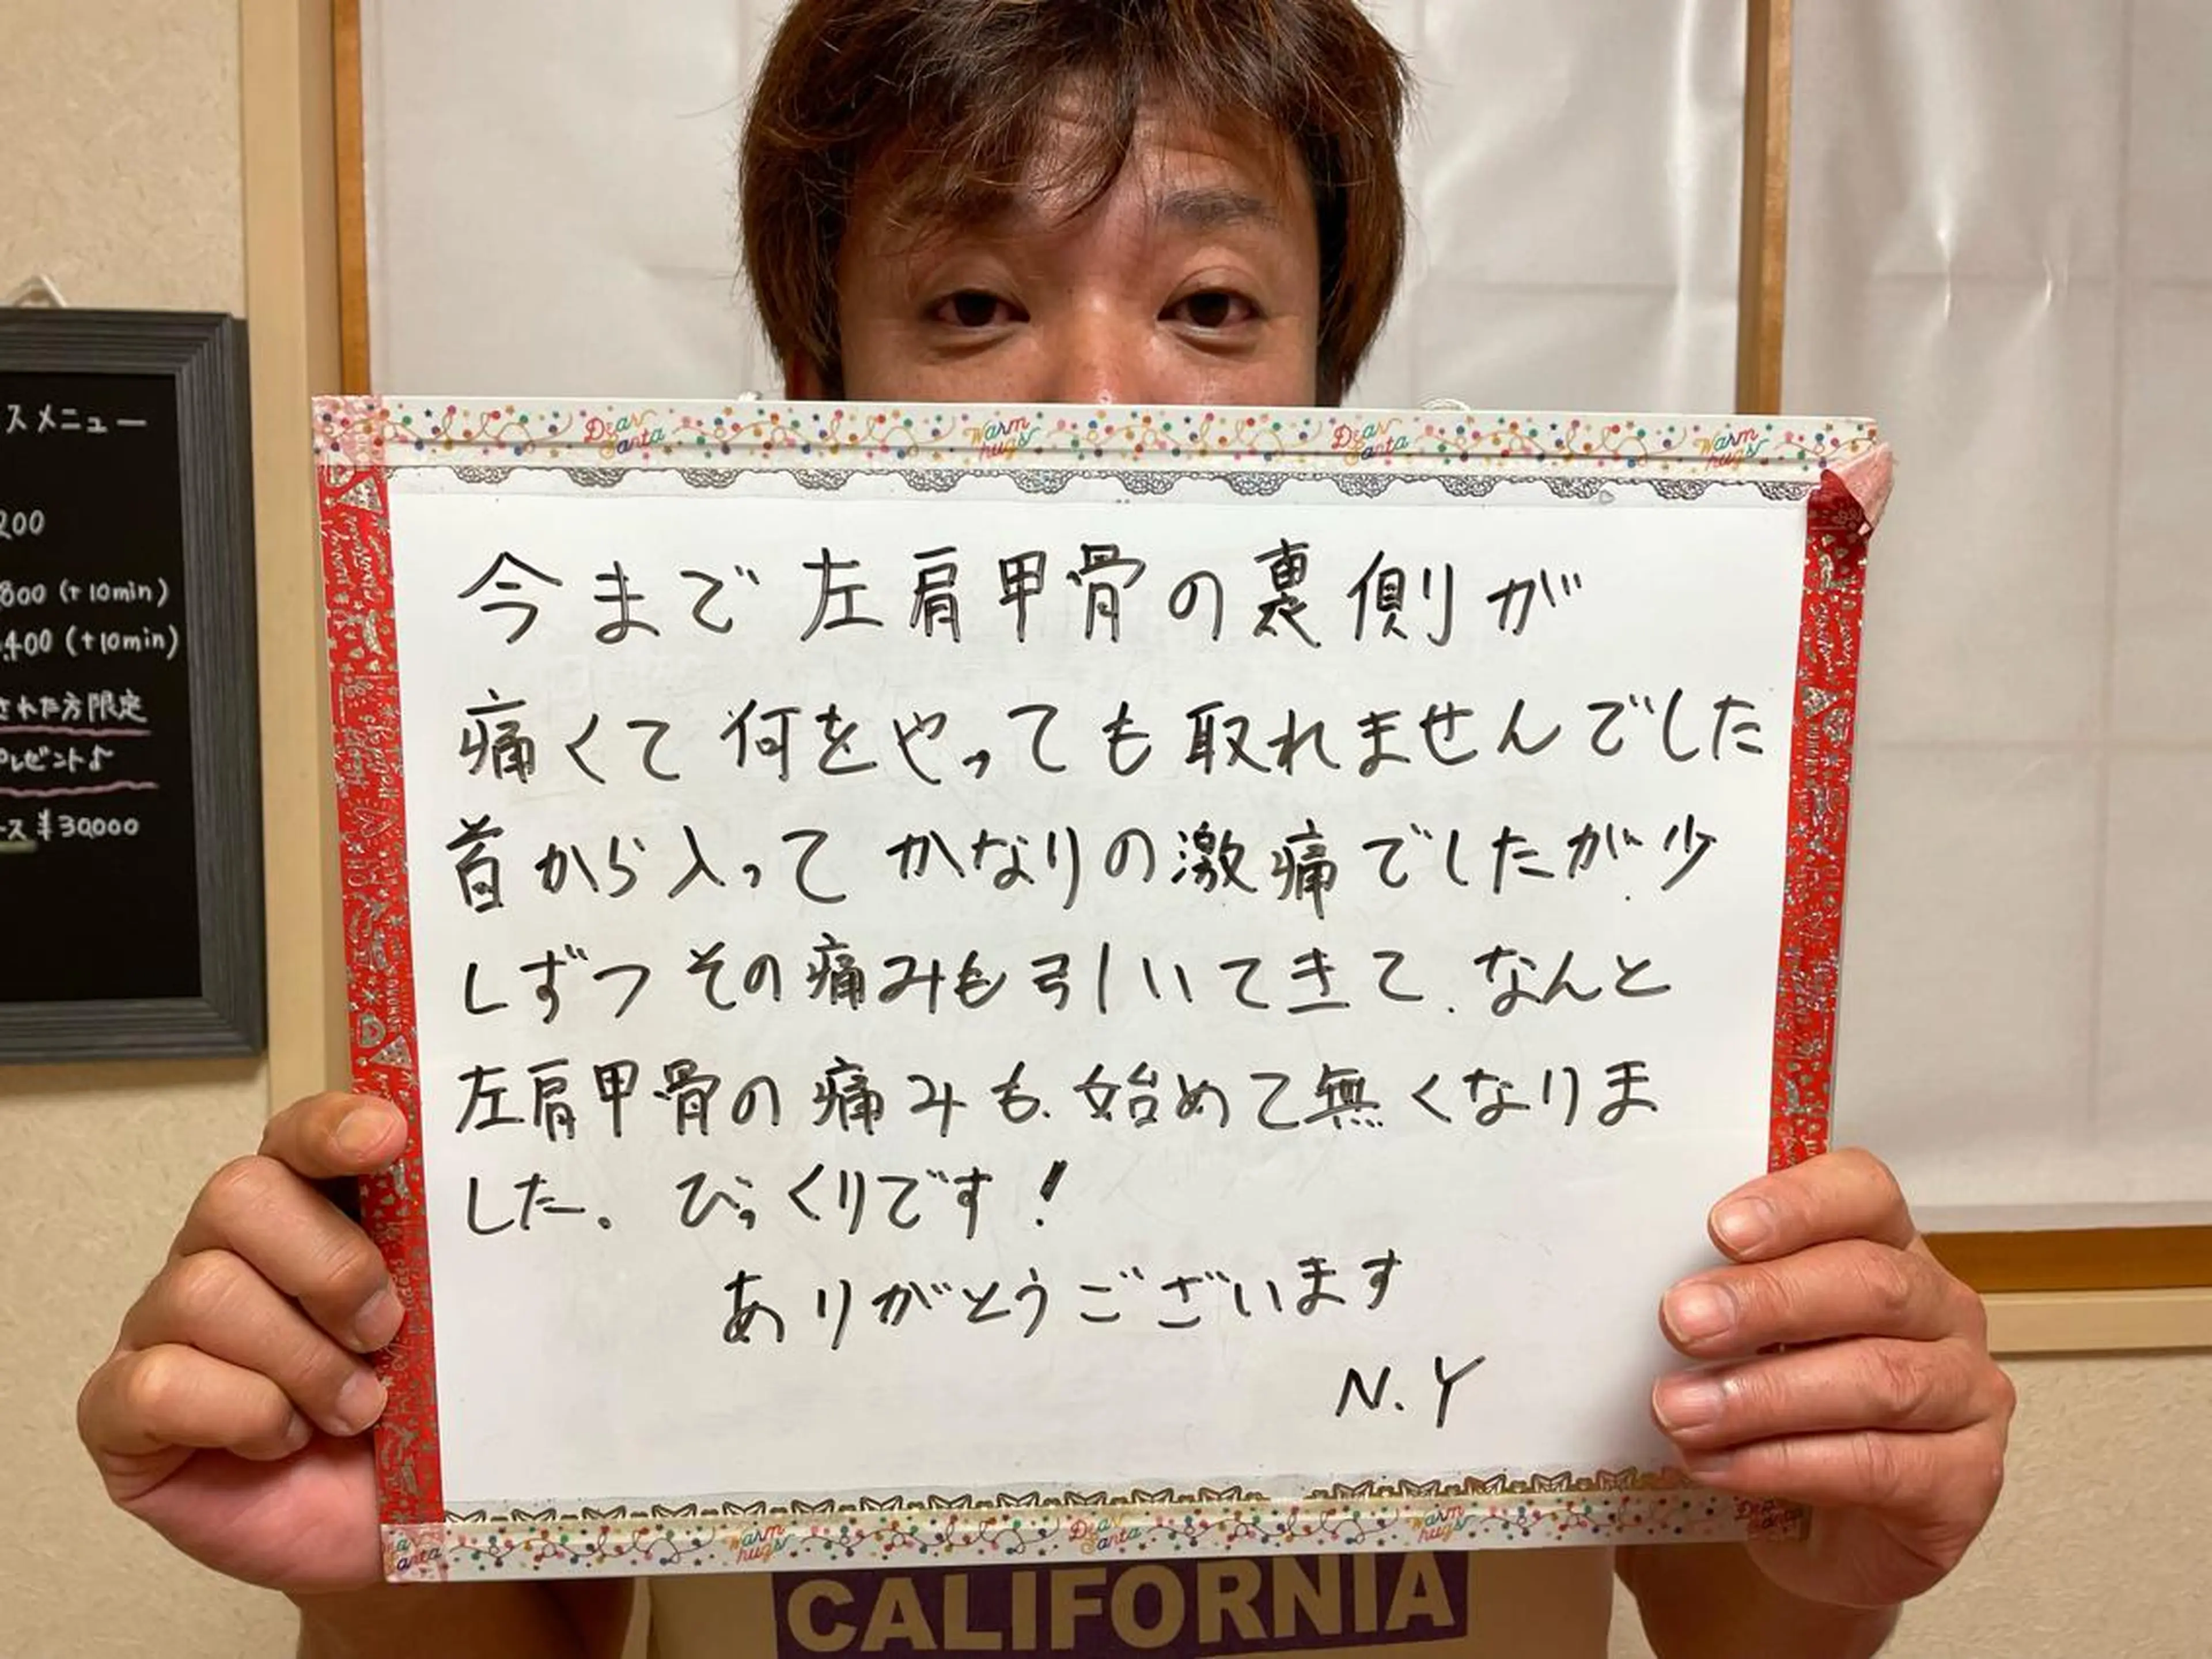 スメニュー
200
800 (+10min)
,400 (+10min)
された方限定
プレゼント♪
ース ¥30,000
Dear Santa Warm hugs Dear Santa Warm hugs
今まで左肩甲骨の裏側が
痛くて何をやっても取れませんでした
首から入ってかなりの激痛でしたが、少
しずつその痛みも引いてきて、なんと
左肩甲骨の痛みも、始めて無くなりま
した。びっくりです!
ありがとうございます
N.Y
Dear Santa Warm hugs Dear Santa Warm hugs Dear Santa
CALIFORNIA